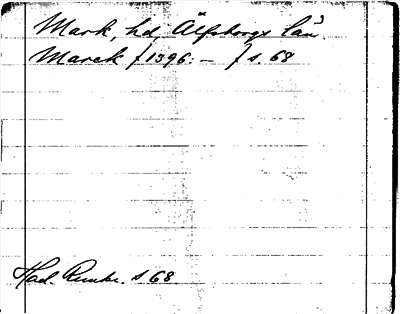 Mark, hd, Älfsborgs län.
Marck /1396. – / s. 68
Had. s 68